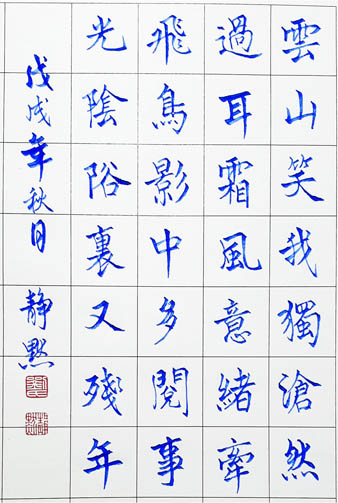 雲山笑我獨滄然
過耳霜風意緒牽
飛鳥影中多閱事
光陰隙裏又殘年
戊戌年秋日 静黙